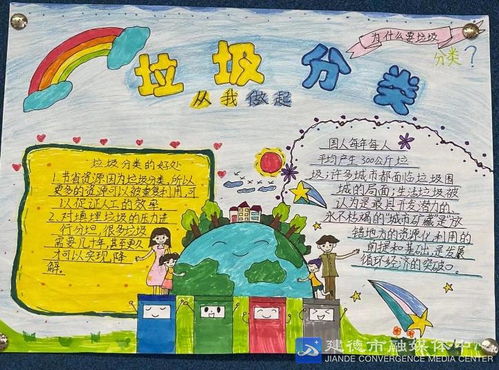 为什么要垃圾
分类?
垃圾分类
从我做起
垃圾分类的好处
1.节省资源因为垃圾分类,所以
更多的资源可以被重复利用,可
以促证人工的效率
2.对填埋垃圾的压力进
行分担,很多垃圾
需要几十年甚至更久
才可以实现降
解.
国人每年每人
平均产生300公斤垃
圾;许多城市都面临垃圾围
城的局面;生活垃圾被
认为是最具开发潜力的
永不枯竭的"城市矿藏"是"没
错地方的资源化利用的
前提和基础,是发展
循环经济的突破口。
建德市融媒体中心
JIANDE CONVERGENCE MEDIA CENTER